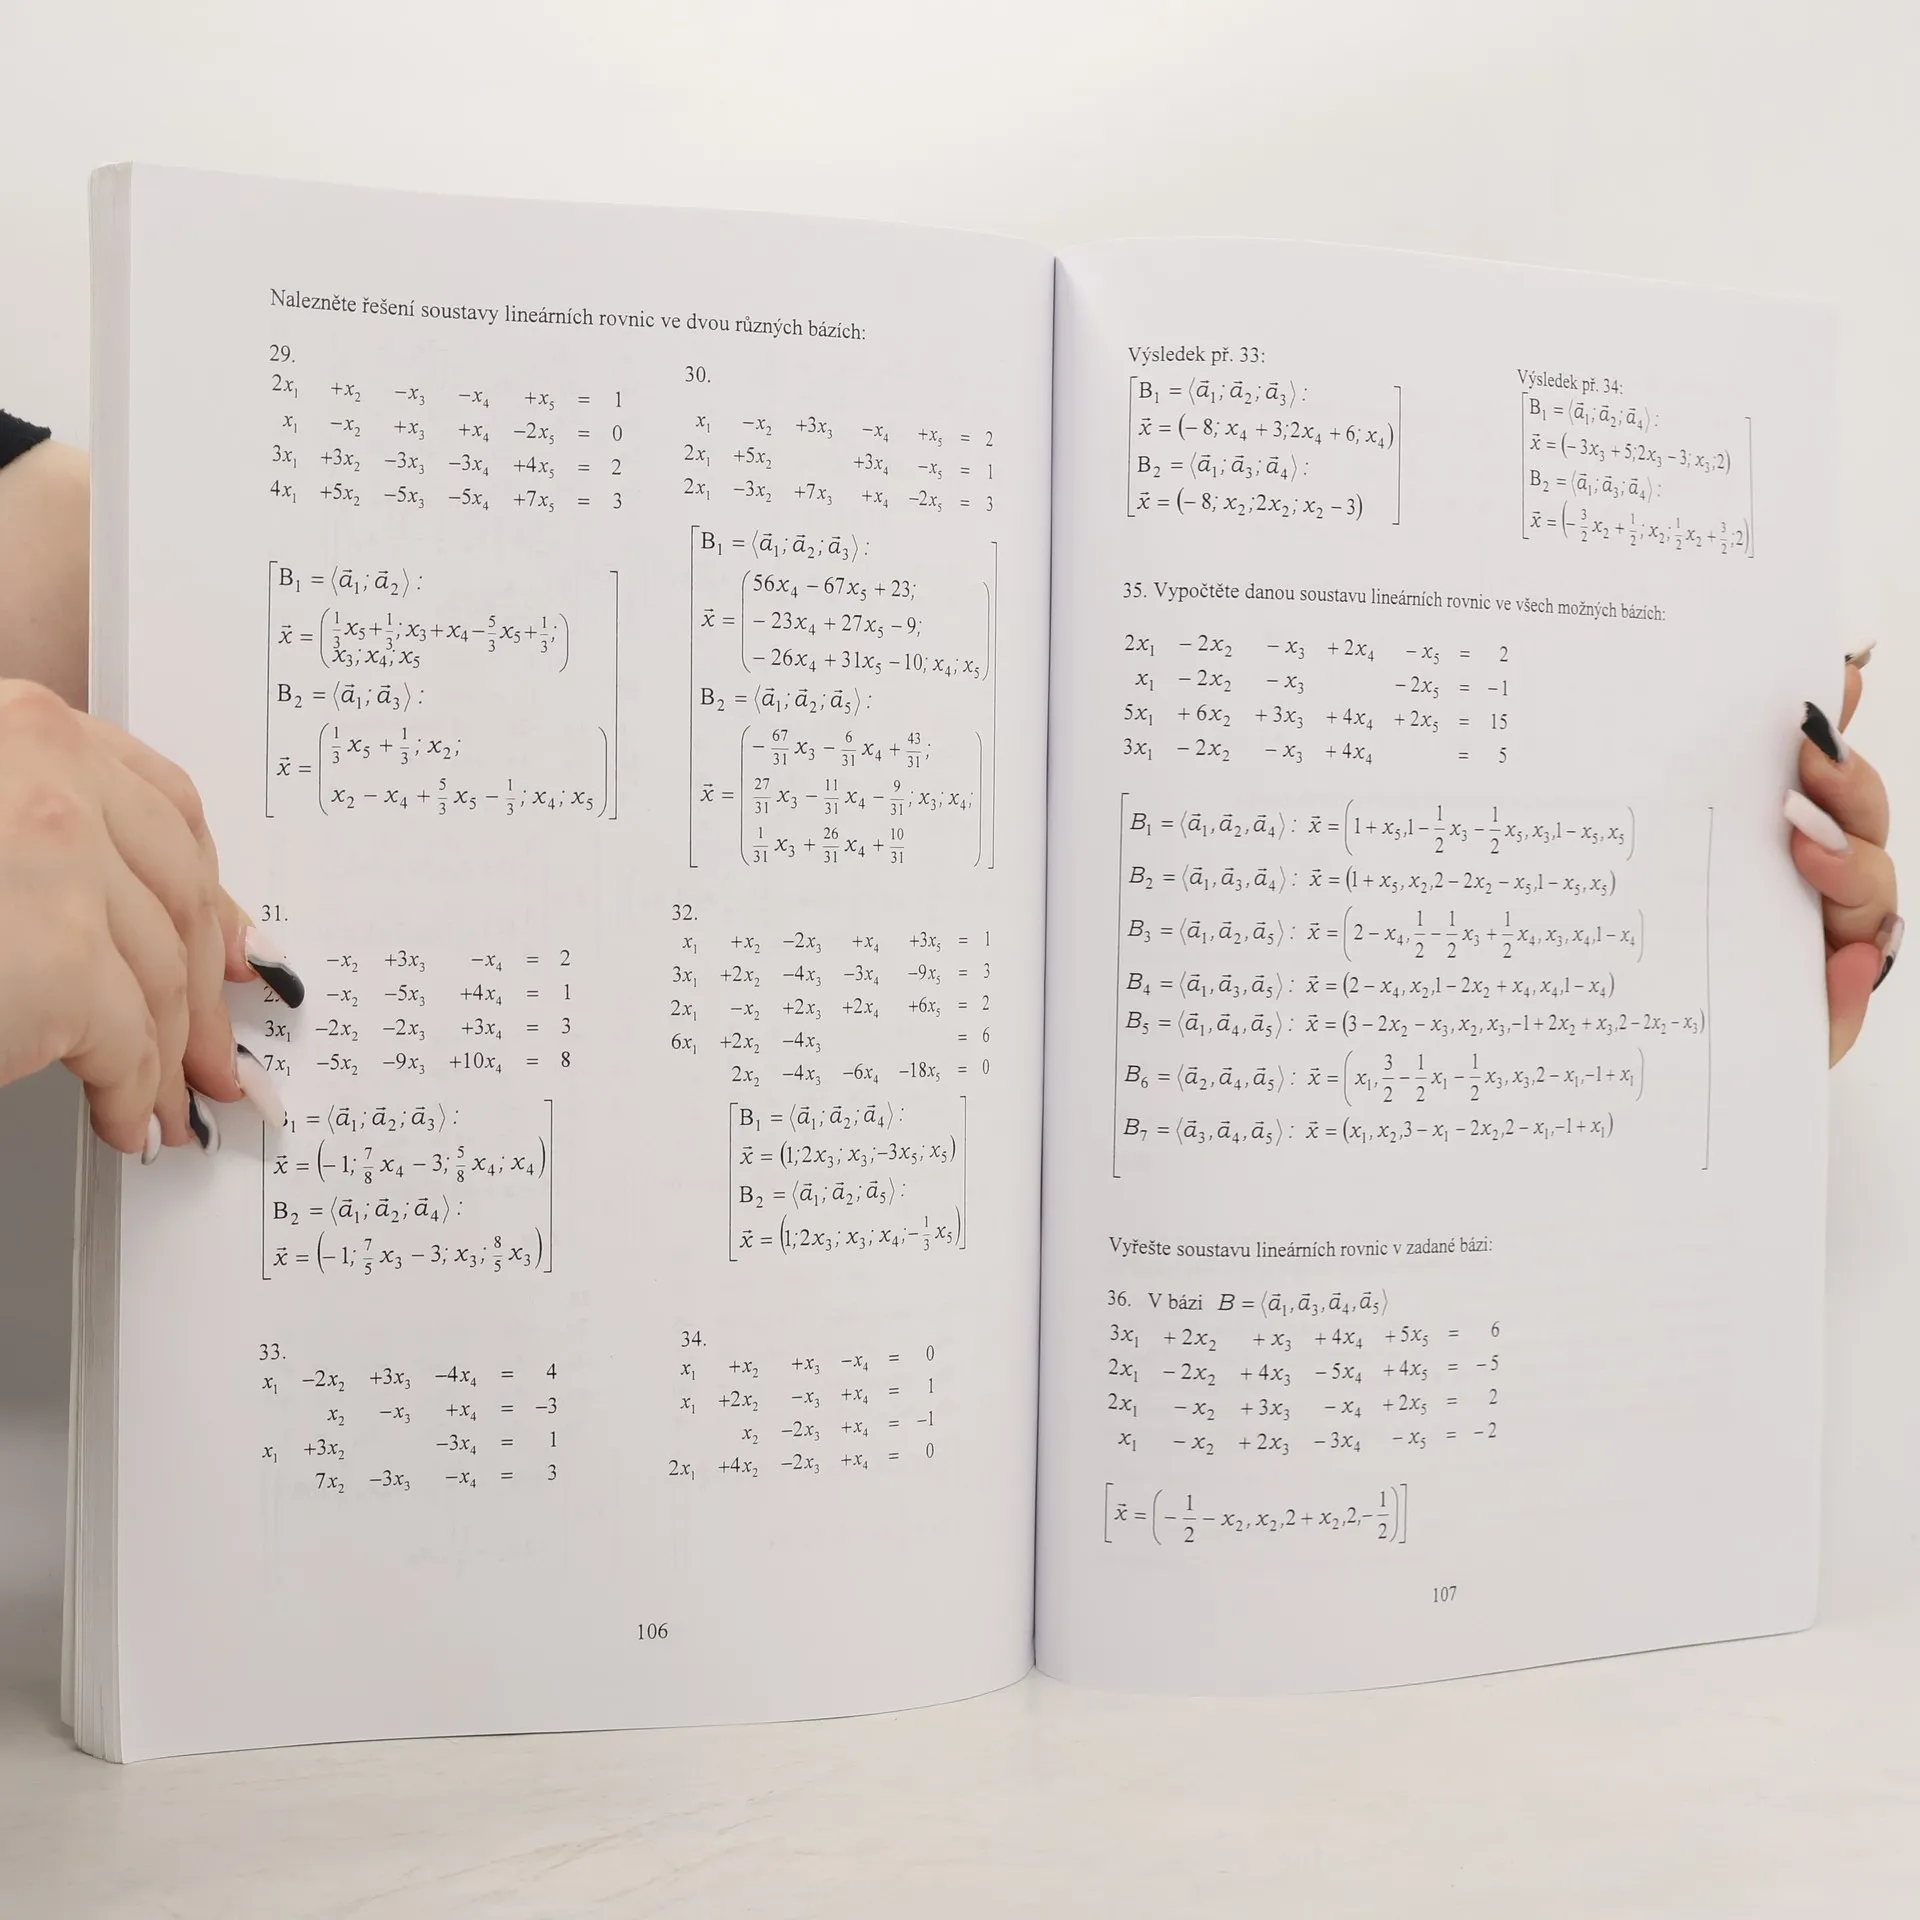 Nalezněte řešení soustavy lineárních rovnic ve dvou různých bázích:
29.
2x₁ +x₂ −x₃ −x₄ +x₅ = 1
x₁ −x₂ +x₃ +x₄ −2x₅ = 0
3x₁ +3x₂ −3x₃ −3x₄ +4x₅ = 2
4x₁ +5x₂ −5x₃ −5x₄ +7x₅ = 3
B₁ = ⟨a⃗₁; a⃗₂⟩ :
x⃗ = (1/3 x₅ + 1/3; x₃ + x₄ − 5/3 x₅ + 1/3;
x₃; x₄; x₅)
B₂ = ⟨a⃗₁; a⃗₃⟩ :
x⃗ = (1/3 x₅ + 1/3; x₂;
x₂ − x₄ + 5/3 x₅ − 1/3; x₄; x₅)
30.
x₁ −x₂ +3x₃ −x₄ +x₅ = 2
2x₁ +5x₂ +3x₄ −x₅ = 1
2x₁ −3x₂ +7x₃ +x₄ −2x₅ = 3
B₁ = ⟨a⃗₁; a⃗₂; a⃗₃⟩ :
x⃗ = (56x₄ − 67x₅ + 23;
− 23x₄ + 27x₅ − 9;
− 26x₄ + 31x₅ − 10; x₄; x₅)
B₂ = ⟨a⃗₁; a⃗₂; a⃗₅⟩ :
x⃗ = (− 67/31 x₃ − 6/31 x₄ + 43/31;
27/31 x₃ − 11/31 x₄ − 9/31; x₃; x₄;
1/31 x₃ + 26/31 x₄ + 10/31)
31.
−x₂ +3x₃ −x₄ = 2
−x₂ −5x₃ +4x₄ = 1
3x₁ −2x₂ −2x₃ +3x₄ = 3
7x₁ −5x₂ −9x₃ +10x₄ = 8
= ⟨a⃗₁; a⃗₂; a⃗₃⟩ :
x⃗ = (− 1; 7/8 x₄ − 3; 5/8 x₄; x₄)
B₂ = ⟨a⃗₁; a⃗₂; a⃗₄⟩ :
x⃗ = (− 1; 7/5 x₃ − 3; x₃; 8/5 x₃)
32.
x₁ +x₂ −2x₃ +x₄ +3x₅ = 1
3x₁ +2x₂ −4x₃ −3x₄ −9x₅ = 3
2x₁ −x₂ +2x₃ +2x₄ +6x₅ = 2
6x₁ +2x₂ −4x₃ = 6
2x₂ −4x₃ −6x₄ −18x₅ = 0
B₁ = ⟨a⃗₁; a⃗₂; a⃗₄⟩ :
x⃗ = (1;2x₃; x₃;−3x₅; x₅)
B₂ = ⟨a⃗₁; a⃗₂; a⃗₅⟩ :
x⃗ = (1;2x₃; x₃; x₄;− 1/3 x₅)
33.
x₁ −2x₂ +3x₃ −4x₄ = 4
x₂ −x₃ +x₄ = −3
x₁ +3x₂ −3x₄ = 1
7x₂ −3x₃ −x₄ = 3
34.
x₁ +x₂ +x₃ −x₄ = 0
x₁ +2x₂ −x₃ +x₄ = 1
x₂ −2x₃ +x₄ = −1
2x₁ +4x₂ −2x₃ +x₄ = 0
106
Výsledek př. 33:
B₁ = ⟨a⃗₁; a⃗₂; a⃗₃⟩ :
x⃗ = (− 8; x₄ + 3;2x₄ + 6; x₄)
B₂ = ⟨a⃗₁; a⃗₃; a⃗₄⟩ :
x⃗ = (− 8; x₂;2x₂; x₂ − 3)
Výsledek př. 34:
B₁ = ⟨a⃗₁; a⃗₂; a⃗₄⟩ :
x⃗ = (− 3x₃ + 5;2x₃ − 3; x₃;2)
B₂ = ⟨a⃗₁; a⃗₃; a⃗₄⟩ :
x⃗ = (− 3/2 x₂ + 1/2; x₂; 1/2 x₂ + 3/2;2)
35. Vypočtěte danou soustavu lineárních rovnic ve všech možných bázích:
2x₁ − 2x₂ − x₃ + 2x₄ − x₅ = 2
x₁ − 2x₂ − x₃ − 2x₅ = −1
5x₁ + 6x₂ + 3x₃ + 4x₄ + 2x₅ = 15
3x₁ − 2x₂ − x₃ + 4x₄ = 5
B₁ = ⟨a⃗₁, a⃗₂, a⃗₄⟩ : x⃗ = (1 + x₅,1 − 1/2 x₃ − 1/2 x₅, x₃,1 − x₅, x₅)
B₂ = ⟨a⃗₁, a⃗₃, a⃗₄⟩ : x⃗ = (1 + x₅, x₂,2 − 2x₂ − x₅,1 − x₅, x₅)
B₃ = ⟨a⃗₁, a⃗₂, a⃗₅⟩ : x⃗ = (2 − x₄, 1/2 − 1/2 x₃ + 1/2 x₄, x₃, x₄,1 − x₄)
B₄ = ⟨a⃗₁, a⃗₃, a⃗₅⟩ : x⃗ = (2 − x₄, x₂,1 − 2x₂ + x₄, x₄,1 − x₄)
B₅ = ⟨a⃗₁, a⃗₄, a⃗₅⟩ : x⃗ = (3 − 2x₂ − x₃, x₂, x₃,−1 + 2x₂ + x₃,2 − 2x₂ − x₃)
B₆ = ⟨a⃗₂, a⃗₄, a⃗₅⟩ : x⃗ = (x₁, 3/2 − 1/2 x₁ − 1/2 x₃, x₃,2 − x₁,−1 + x₁)
B₇ = ⟨a⃗₃, a⃗₄, a⃗₅⟩ : x⃗ = (x₁, x₂,3 − x₁ − 2x₂,2 − x₁,−1 + x₁)
Vyřešte soustavu lineárních rovnic v zadané bázi:
36. V bázi B = ⟨a⃗₁, a⃗₃, a⃗₄, a⃗₅⟩
3x₁ + 2x₂ + x₃ + 4x₄ + 5x₅ = 6
2x₁ − 2x₂ + 4x₃ − 5x₄ + 4x₅ = −5
2x₁ − x₂ + 3x₃ − x₄ + 2x₅ = 2
x₁ − x₂ + 2x₃ − 3x₄ − x₅ = −2
[x⃗ = (− 1/2 − x₂, x₂,2 + x₂,2,− 1/2)]
107